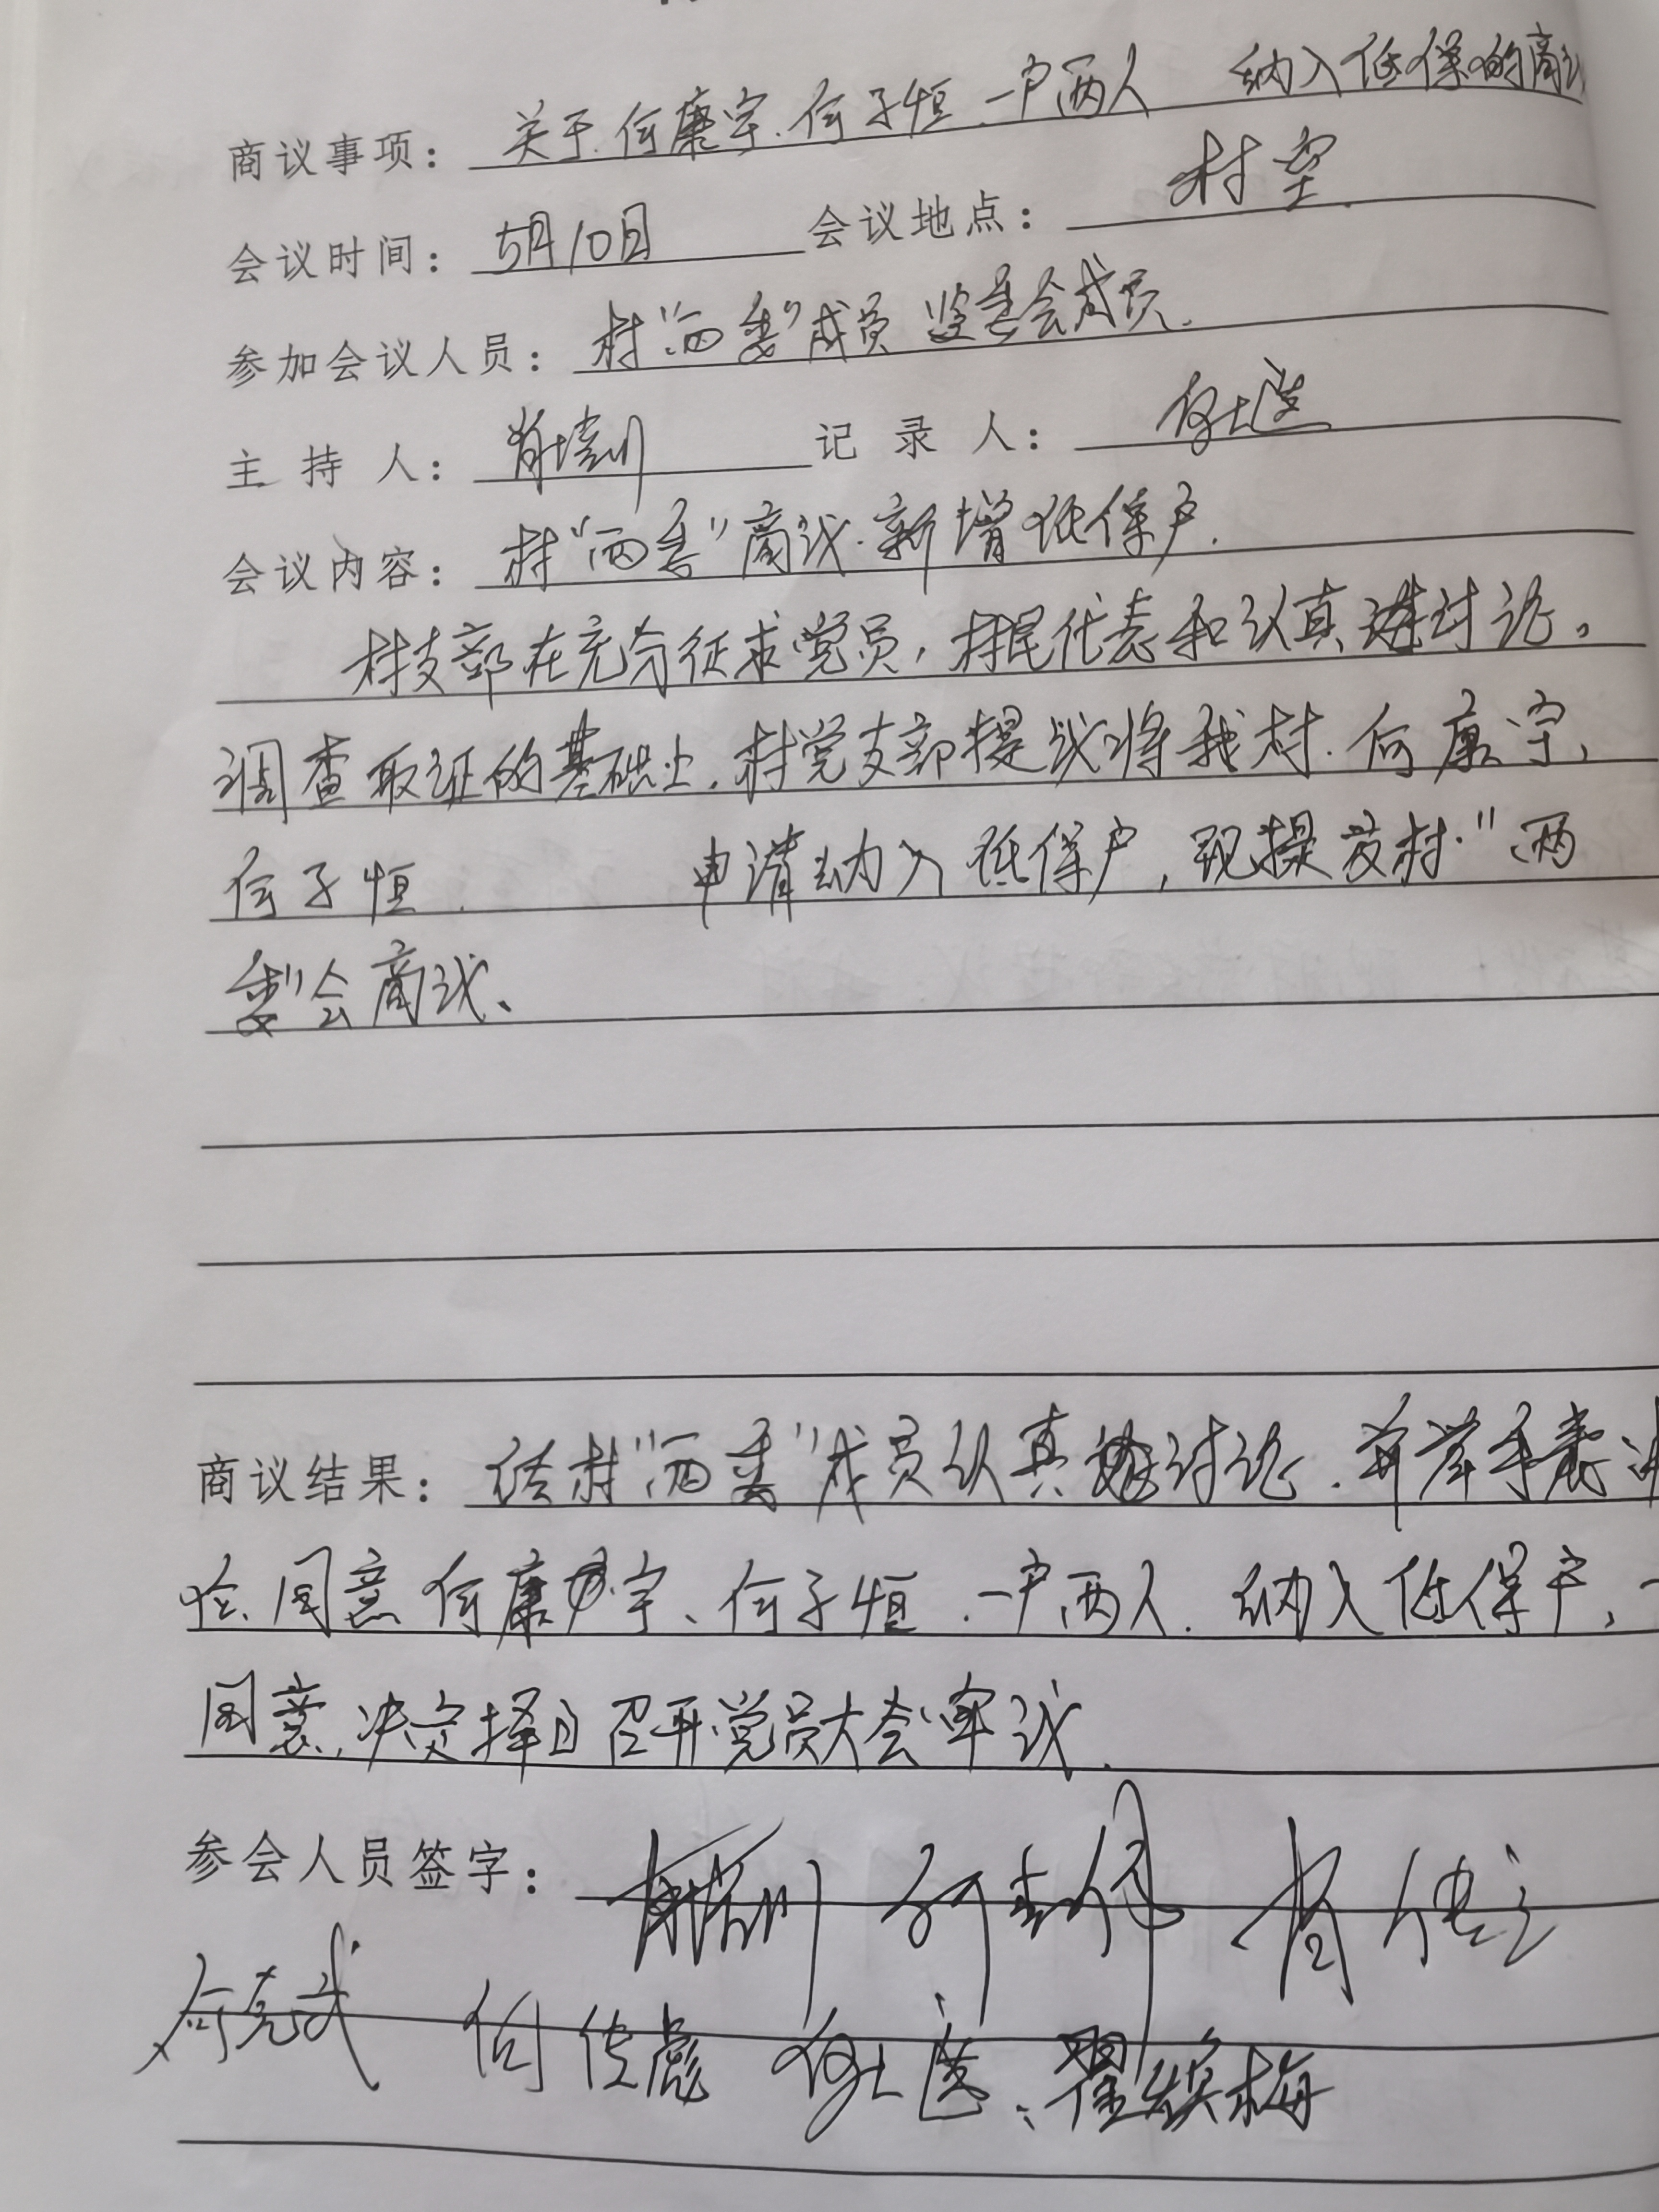 商议事项：关于.何康宇.何子恒.一户两人 纳入低保的商议
会议时间：5月10日 会议地点：村室.
参加会议人员：村“两委”成员 监委会成员.
主持人： 记录人：
会议内容：村“两委”商议.新增低保户.
村支部在充分征求党员，村民代表和认真进讨论。
调查取证的基础上.村党支部提议将我村.何康宇，
何子恒. 申请纳入低保户，现提交村“两
委”会商议、
商议结果：经村“两委”成员认真 讨论.并举手表决
同意何康宇、何子恒.一户两人.纳入低保户，一
同意，决定择日召开党员大会审议.
参会人员签字：
何克武 何传彪